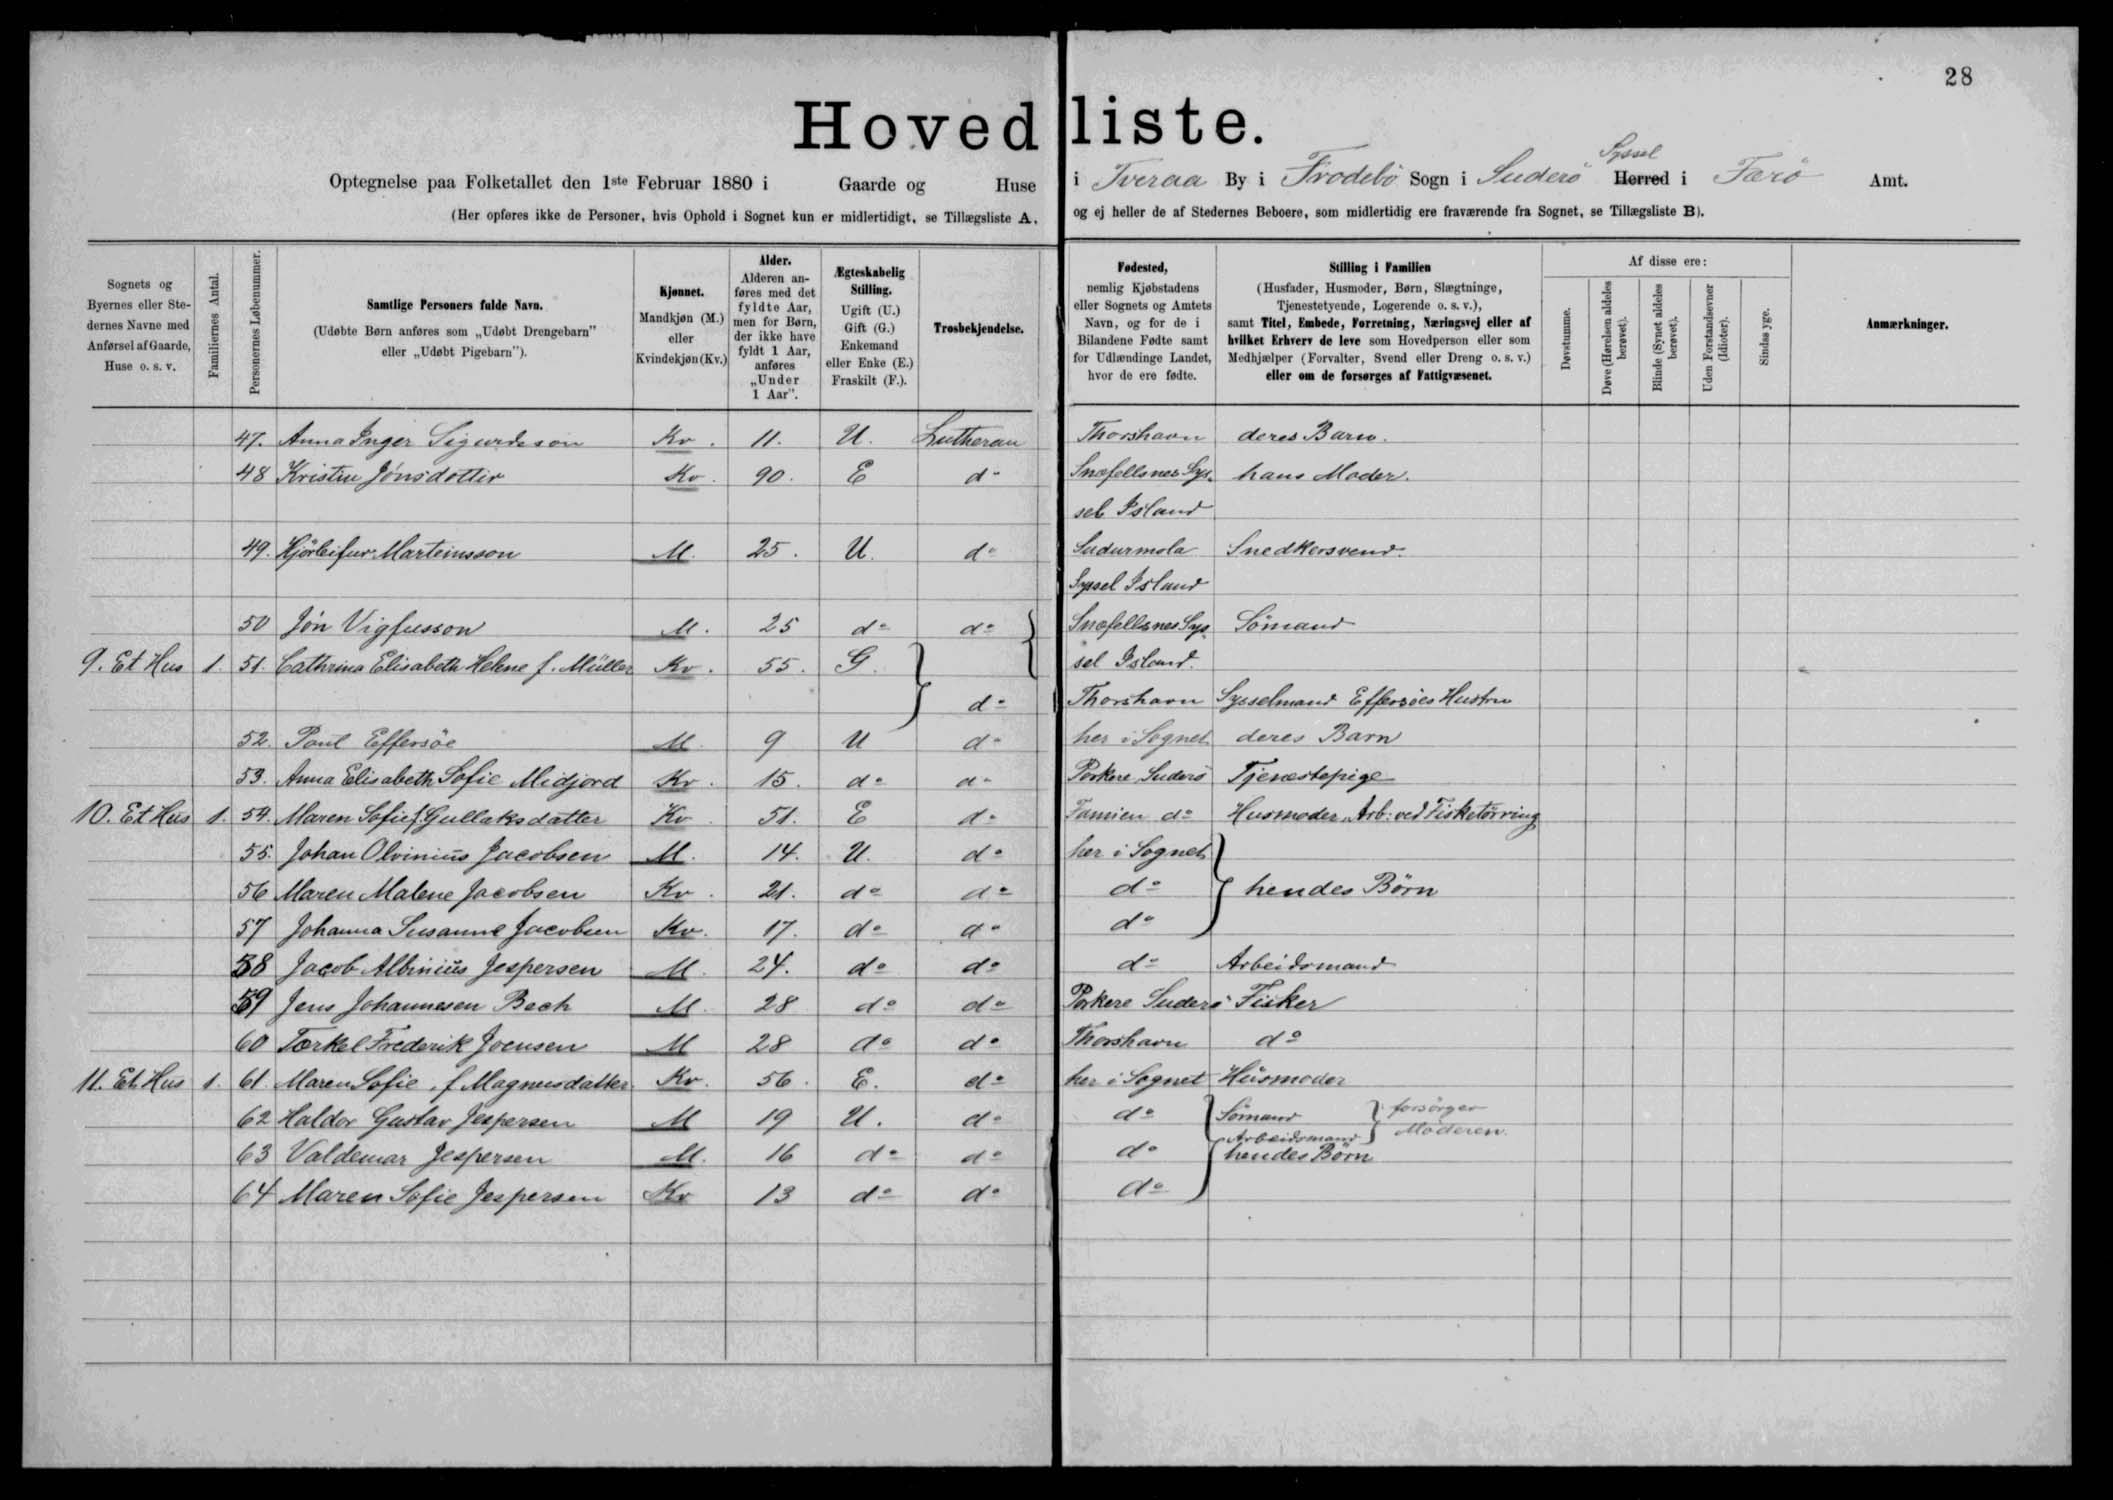 28
Hovedliste.
Optegnelse paa Folketallet den 1ste Februar 1880 i Gaarde og Huse i Tveraa By i Frodebö Sogn i Suderö Syssel Herred i Færö Amt.
(Her opføres ikke de Personer, hvis Ophold i Sognet kun er midlertidigt, se Tillægsliste A, og ej heller de af Stedernes Beboere, som midlertidig ere fraværende fra Sognet, se Tillægsliste B).
Sognets og Byernes eller Stedernes Navne med Anførsel af Gaarde, Huse o. s. v.
Familiernes Antal.
Personernes Løbenummer.
Samtlige Personers fulde Navn.
(Udøbte Børn anføres som „Udøbt Drengebarn" eller „Udøbt Pigebarn").
Kjønnet.
Mandkjøn (M.) eller Kvindekjøn (Kv.)
Alder.
Alderen anføres med det fyldte Aar, men for Børn, der ikke have fyldt 1 Aar, anføres „Under 1 Aar".
Ægteskabelig Stilling.
Ugift (U.) Gift (G.) Enkemand eller Enke (E.) Fraskilt (F.).
Trosbekjendelse.
Fødested,
nemlig Kjøbstadens eller Sognets og Amtets Navn, og for de i Bilandene Fødte samt for Udlændinge Landet, hvor de ere fødte.
Stilling i Familien
(Husfader, Husmoder, Børn, Slægtninge, Tjenestetyende, Logerende o. s. v.), samt Titel, Embede, Forretning, Næringsvej eller af hvilket Erhverv de leve som Hovedperson eller som Medhjælper (Forvalter, Svend eller Dreng o. s. v.) eller om de forsørges af Fattigvæsenet.
Af disse ere:
Døvstumme.
Døve (Hørelsen aldeles berøvet).
Blinde (Synet aldeles berøvet).
Uden Forstandsevner (Idioter).
Sindssyge.
Anmærkninger.
47. Anna Inger Sigurdsson Kv. 11. U. Lutheran Thorshavn deres Barn.
48 Kristin Jónsdottir Kv. 90. E do Snæfellsnes Sys- hans Moder.
sel Island
49. Hjörleifur Marteinsson M. 25. U. do Sudurmola Snedkersvend.
Syssel Island
50 Jón Vigfusson M. 25 do do Snæfellsnes Sys Sömand
9. Et Hus 1. 51. Cathrina Elisabeth Helene f. Müller Kv. 55. G. sel Island.
do Thorshavn Sysselmand Effersöes Hustru
52. Poul Effersöe M. 9 U do her i Sognet deres Barn
53. Anna Elisabeth Sofie Midjord Kv. 15. do do Porkere Suderö Tjenestepige
10. Et Hus 1. 54. Maren Sofie f. Gullaksdatter Kv 51. E do Famien do Husmoder, Arb: ved Fisketörring
55. Johan Olvinius Jacobsen M. 14. U. do her i Sognet
56 Maren Malene Jacobsen Kv. 21. do do do hendes Börn
57 Johanna Susanne Jacobsen Kv. 17. do do do
58 Jacob Albinius Jespersen M. 24. do do do Arbeidsmand
59 Jens Johannesen Bech M. 28 do do Porkere Suderö Fisker
60 Torkel Frederik Joensen M 28 do do Thorshavn do
11. Et Hus 1. 61. Maren Sofie, f Magnusdatter Kv. 56. E. do her i Sognet Husmoder
62 Haldor Gustav Jespersen M 19 U. do do Sömand forsörger
Arbeidsmand Moderen.
63 Valdemar Jespersen M. 16 do do do hendes Börn
64 Maren Sofie Jespersen Kv 13 do do do